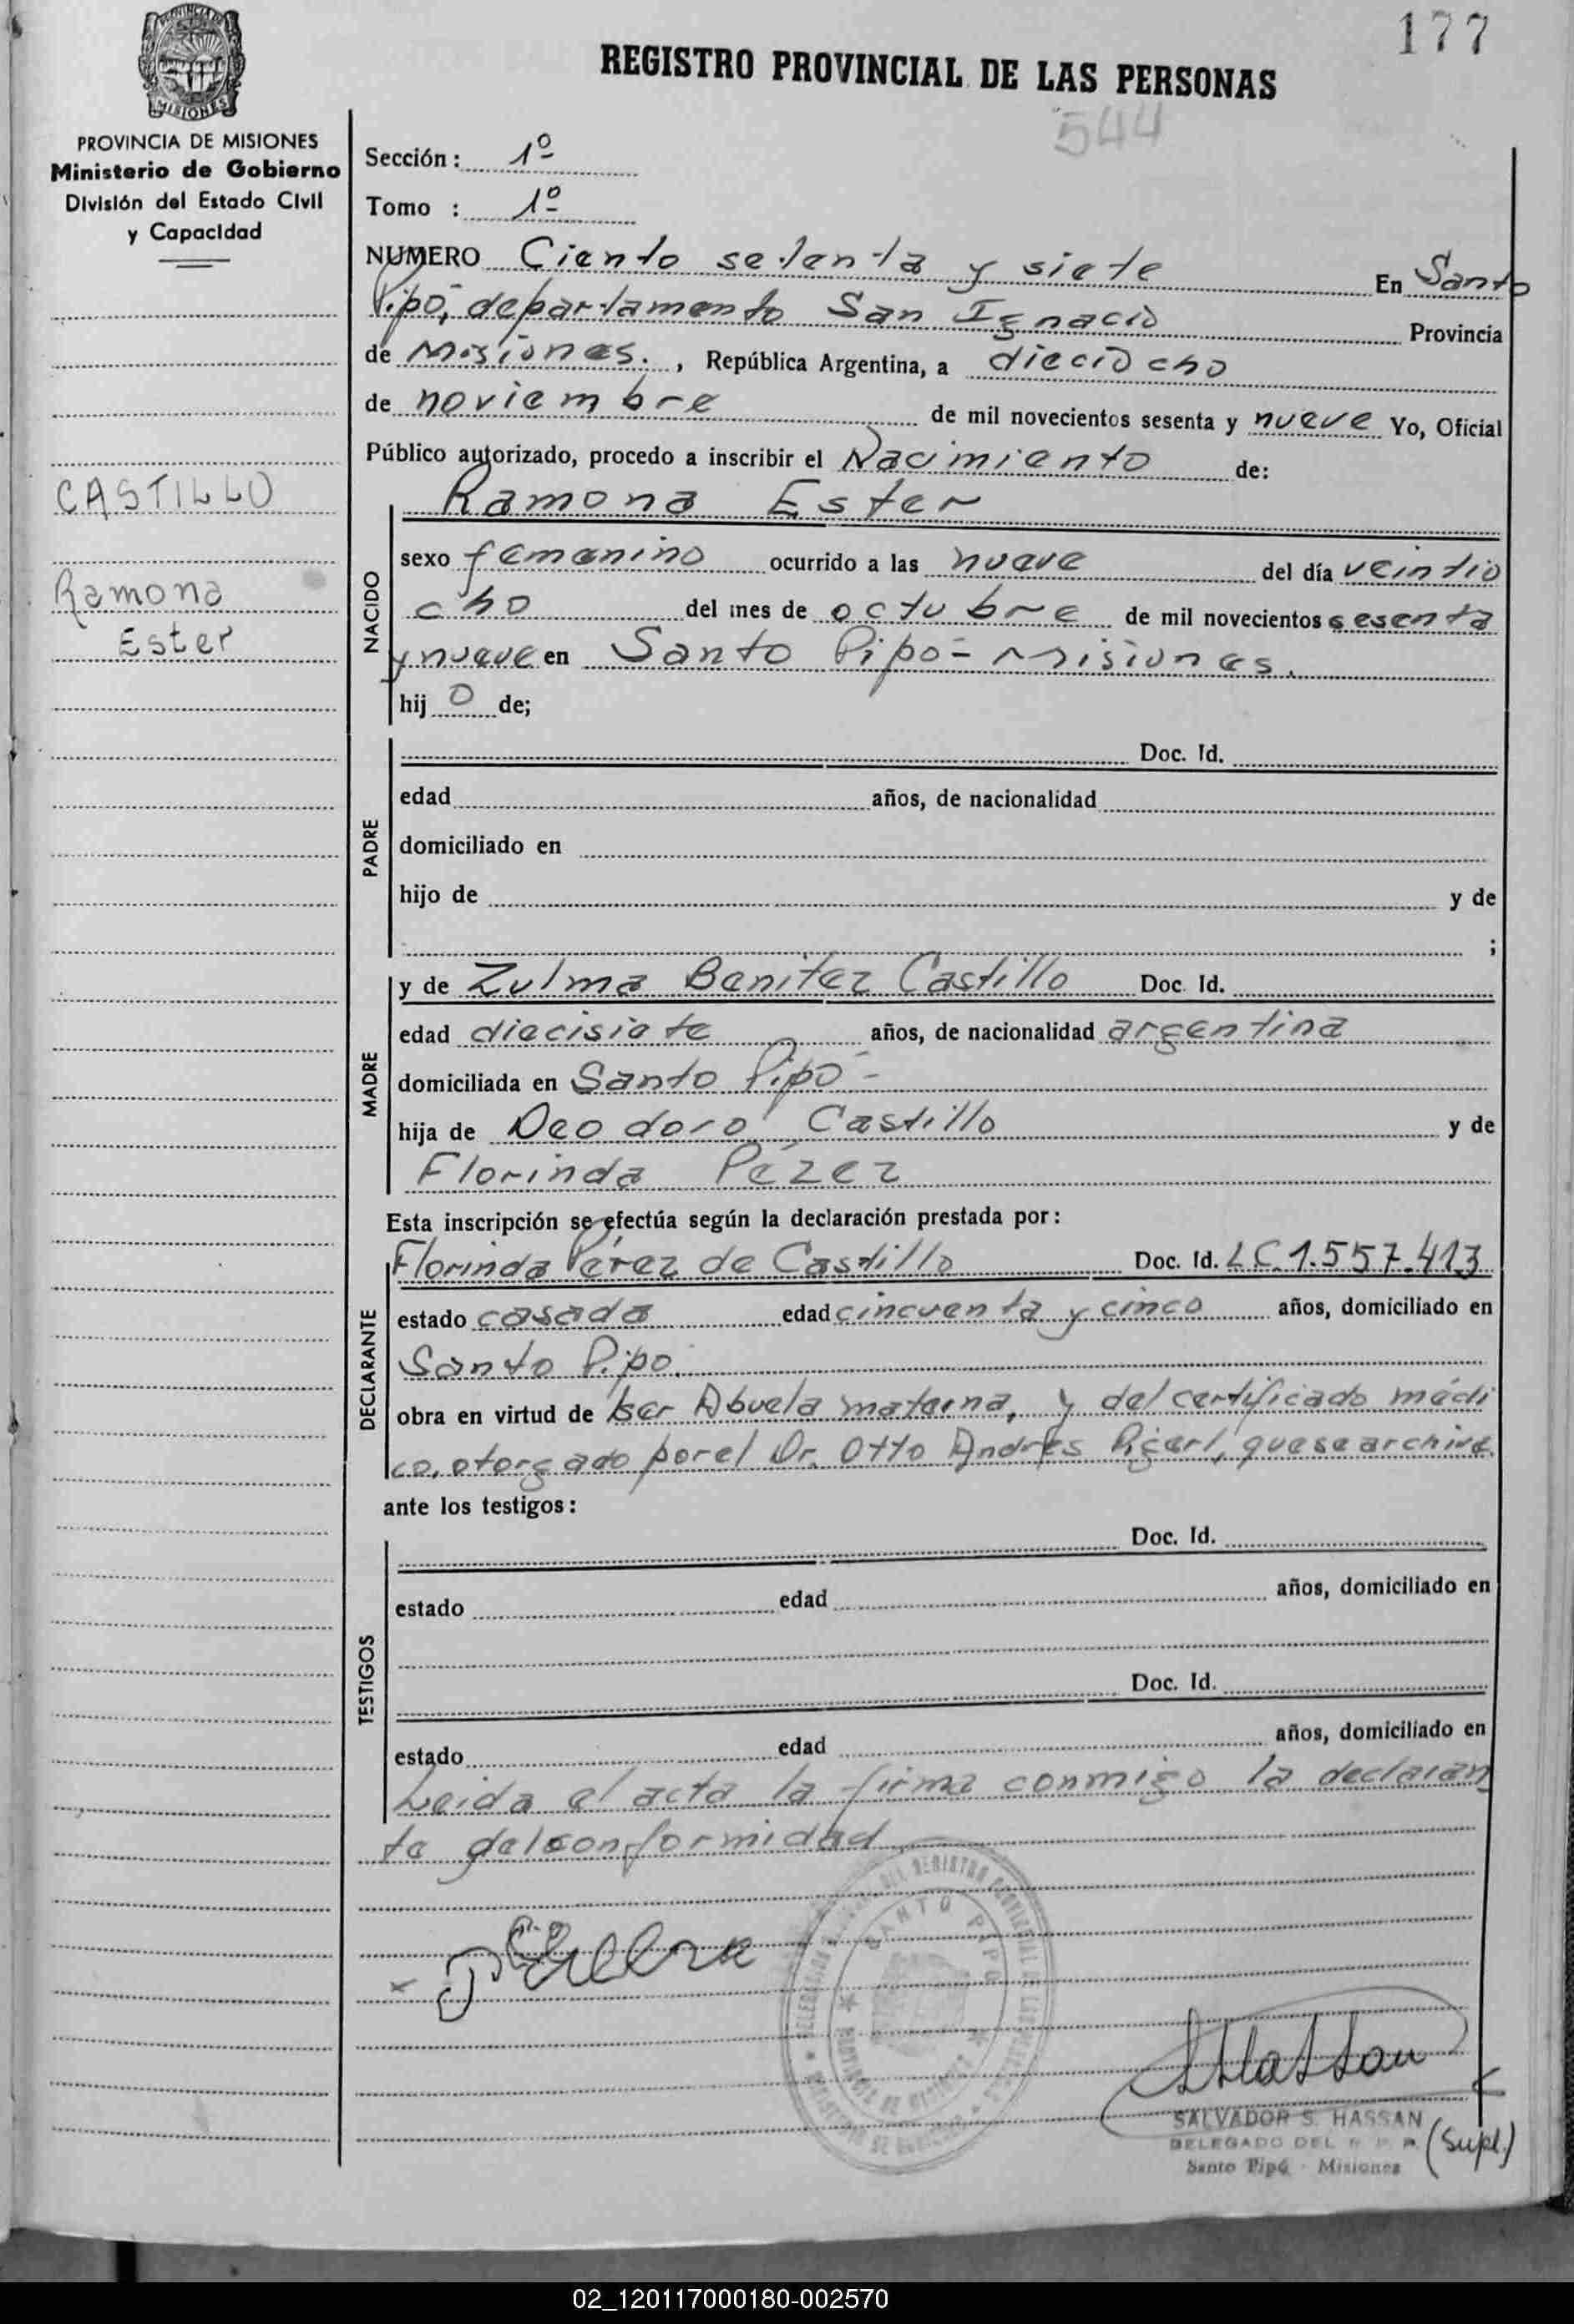 177
REGISTRO PROVINCIAL DE LAS PERSONAS
544
MISIONES
PROVINCIA DE MISIONES
Ministerio de Gobierno
División del Estado Civil
y Capacidad
CASTILLO
Ramona
Ester
Sección: 1º
Tomo : 1º
NUMERO Ciento setenta y siete En Santo
Pipó, departamento San Ignacio Provincia
de Misiones. , República Argentina, a dieciocho
de noviembre de mil novecientos sesenta y nueve Yo, Oficial
Público autorizado, procedo a inscribir el Nacimiento de:
Ramona Ester
NACIDO
sexo femenino ocurrido a las nueve del día veintio
cho del mes de octubre de mil novecientos sesenta
y nueve en Santo Pipó - Misiones.
hij o de;
PADRE
Doc. Id.
edad años, de nacionalidad
domiciliado en
hijo de y de
;
MADRE
y de Zulma Benitez Castillo Doc. Id.
edad diecisiete años, de nacionalidad argentina
domiciliada en Santo Pipó -
hija de Deodoro Castillo y de
Florinda Pérez
Esta inscripción se efectúa según la declaración prestada por:
DECLARANTE
Florinda Pérez de Castillo Doc. Id. LC.1.557.413
estado casada edad cincuenta y cinco años, domiciliado en
Santo Pipo.
obra en virtud de ser Abuela materna, y del certificado médi
co, otorgado por el Dr. Otto Andrés que se archiva.
ante los testigos:
TESTIGOS
Doc. Id.
estado edad años, domiciliado en
Doc. Id.
estado edad años, domiciliado en
Leida el acta la firma conmigo la declaran
te de conformidad
SANTO PIPO
PROVINCIA DE MISIONES
SALVADOR S. HASSAN
DELEGADO DEL R. P. P. (Supl.)
Santo Pipó - Misiones
02_120117000180-002570